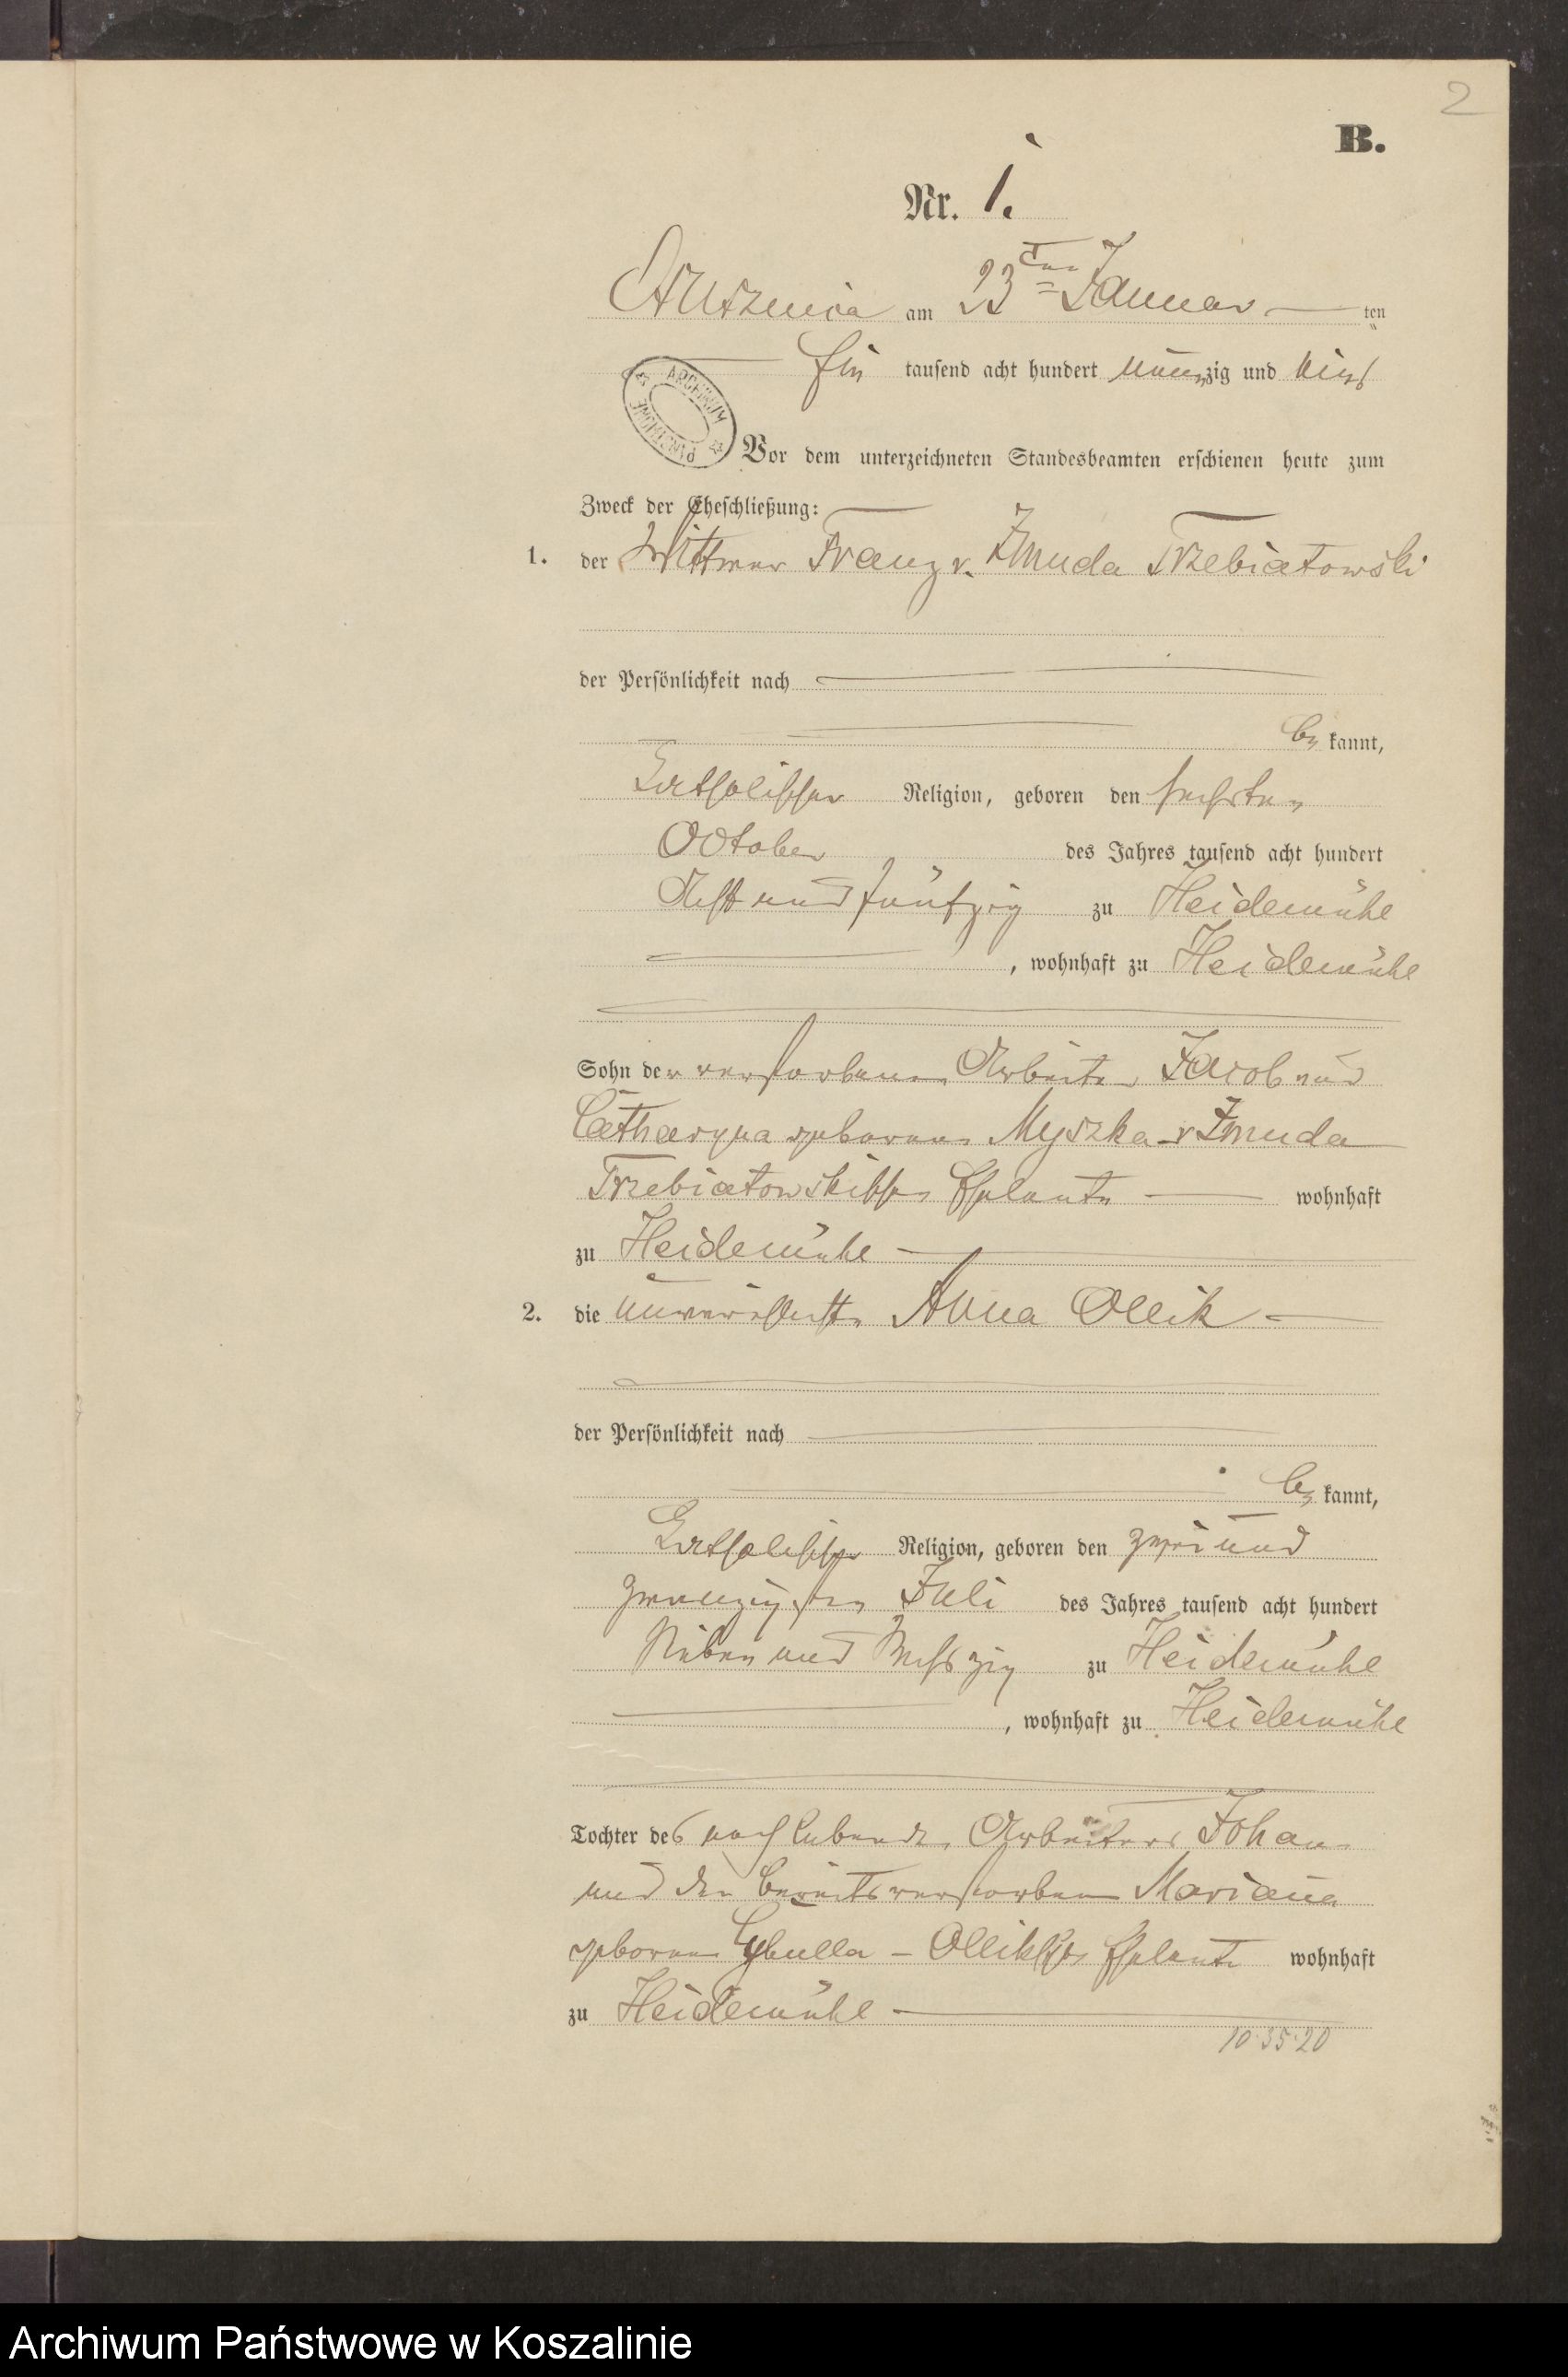 2
B.
Nr. 1.
Studzienica am 23ten Januar ten
Ein tausend acht hundert neunzig und eins
ARCHIWUM PAŃSTWOWE
Vor dem unterzeichneten Standesbeamten erschienen heute zum
Zweck der Eheschließung:
1. der Wittwer Franz v. Zmuda Trzebiatowski
der Persönlichkeit nach
be kannt,
katholischer Religion, geboren den sechsten
October des Jahres tausend acht hundert
Acht und fünfzig zu Heidemühl
, wohnhaft zu Heidemühl
Sohn der verstorbenen Arbeiter Jacob und
Catharyna geborene Myszka v Zmuda
Trzebiatowskischen Eheleute wohnhaft
zu Heidemühl
2. die unverehelichte Anna Ollik
der Persönlichkeit nach
be kannt,
katholischer Religion, geboren den zwei und
zwanzigsten Juli des Jahres tausend acht hundert
Sieben und Sechszig zu Heidemühl
, wohnhaft zu Heidemühl
Tochter des noch lebenden Arbeiters Johann
und der bereits verstorbenen Mariana
geborene Cybulla - Ollikschen Eheleute wohnhaft
zu Heidemühl
10.35.20
Archiwum Państwowe w Koszalinie